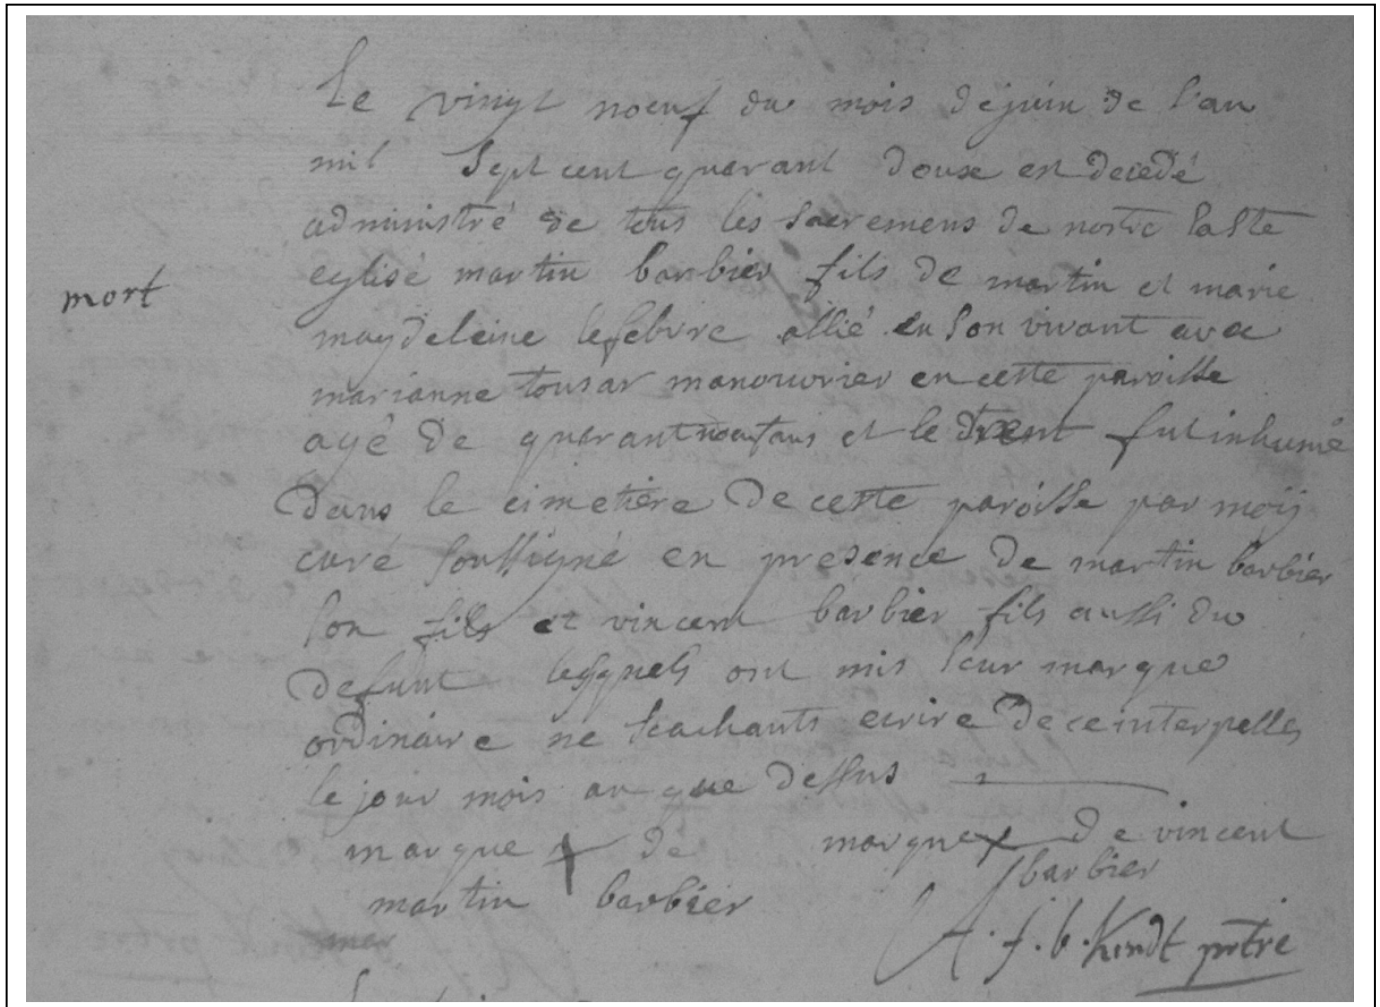 Le vingt noeuf du mois dejuin de l'an
mil sept cent quarant douxe est decedé
administré de tous les sacremens de nostre saste
eglisé martin barbier fils de martin et marie
magdeleine lefebvre allié en son vivant avec
marianne tousar manouvrier en cette paroisse
mort
agé de quarant noeufans et le trent fut inhumé
Dans le cimetière de cette paroisse par moij
curé soussigné en presence de martin barbier
son fils et vincent barbier fils aussi du
defunt lesquels ont mis leur marque
ordinaire ne scachants ecrire de ce interpelles
le jour mois an que dessus
marque de marque de vincent
martin barbier barbier
mar
A. f. b. Kindt prtre